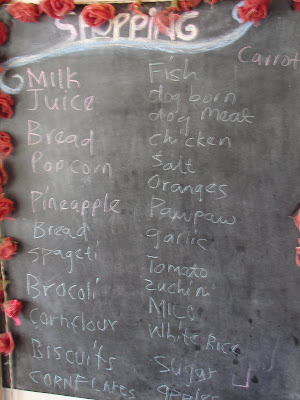 SHOPPING
Carrot
Milk
Juice
Bread
Popcorn
Pineapple
Bread
Spageti
Brocoli
Cornflour
Biscuits
CORNFLAKES
Fish
dog born
dog meat
chicken
Salt
Oranges
Pawpaw
garlic
Tomato
Zuchini
MILO
White Rice
Sugar
apples